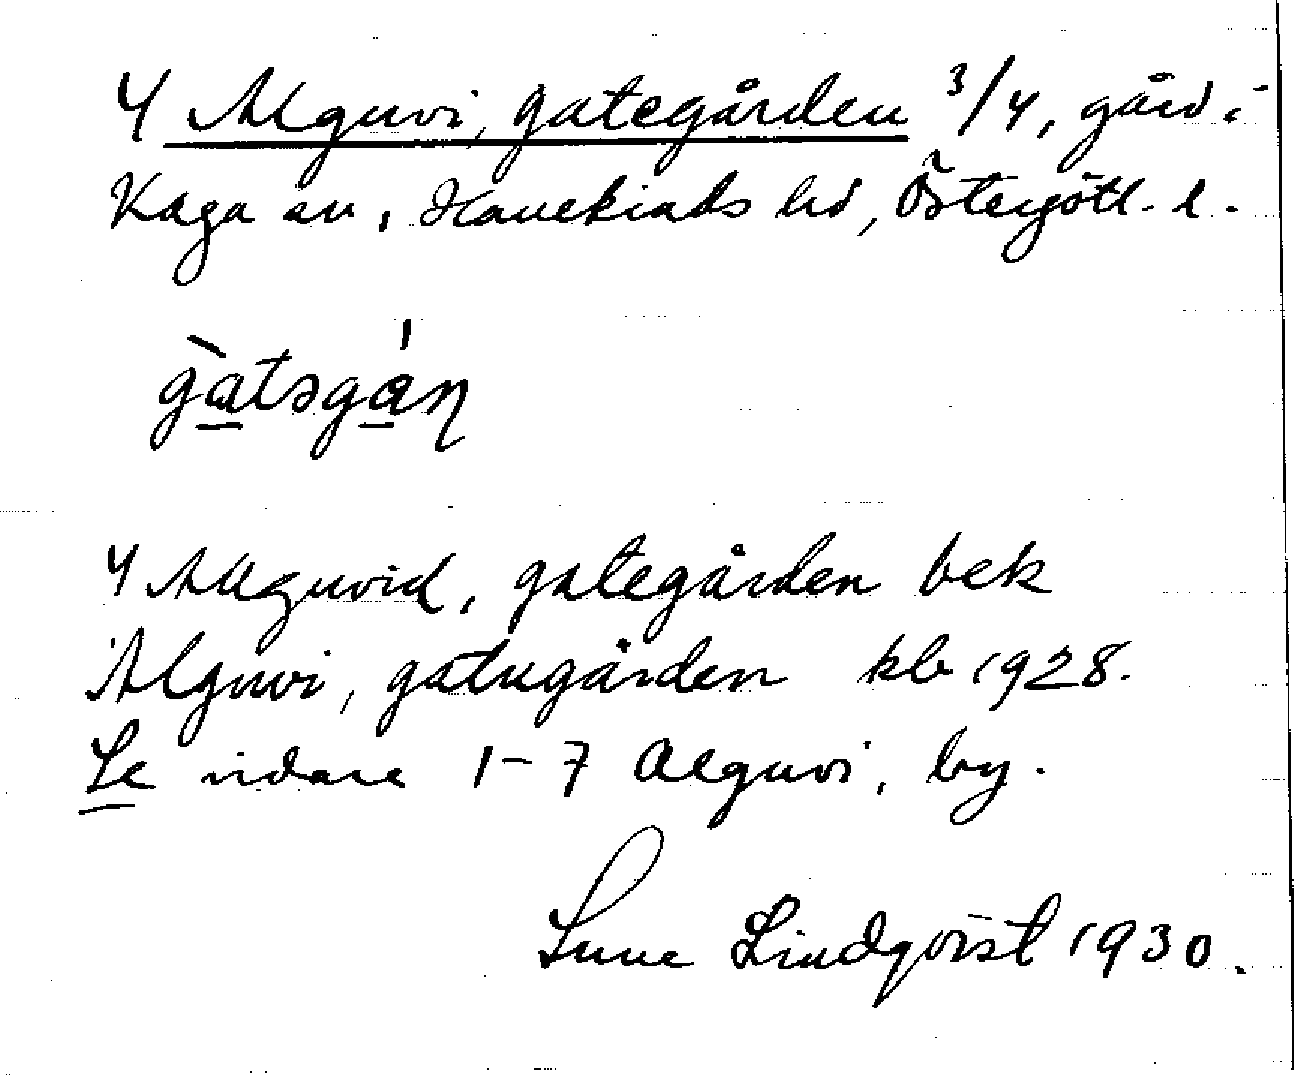 4 Alguvi, gategården 3/4, gård i
Kaga sn, Hanekinds hd, Östergötl. l.
gàtəgán
4 Allguvid, gategården bek
Alguvi, gatugården kb 1928.
Se vidare 1-7 Alguvi, by.
Sune Lindqvist 1930.